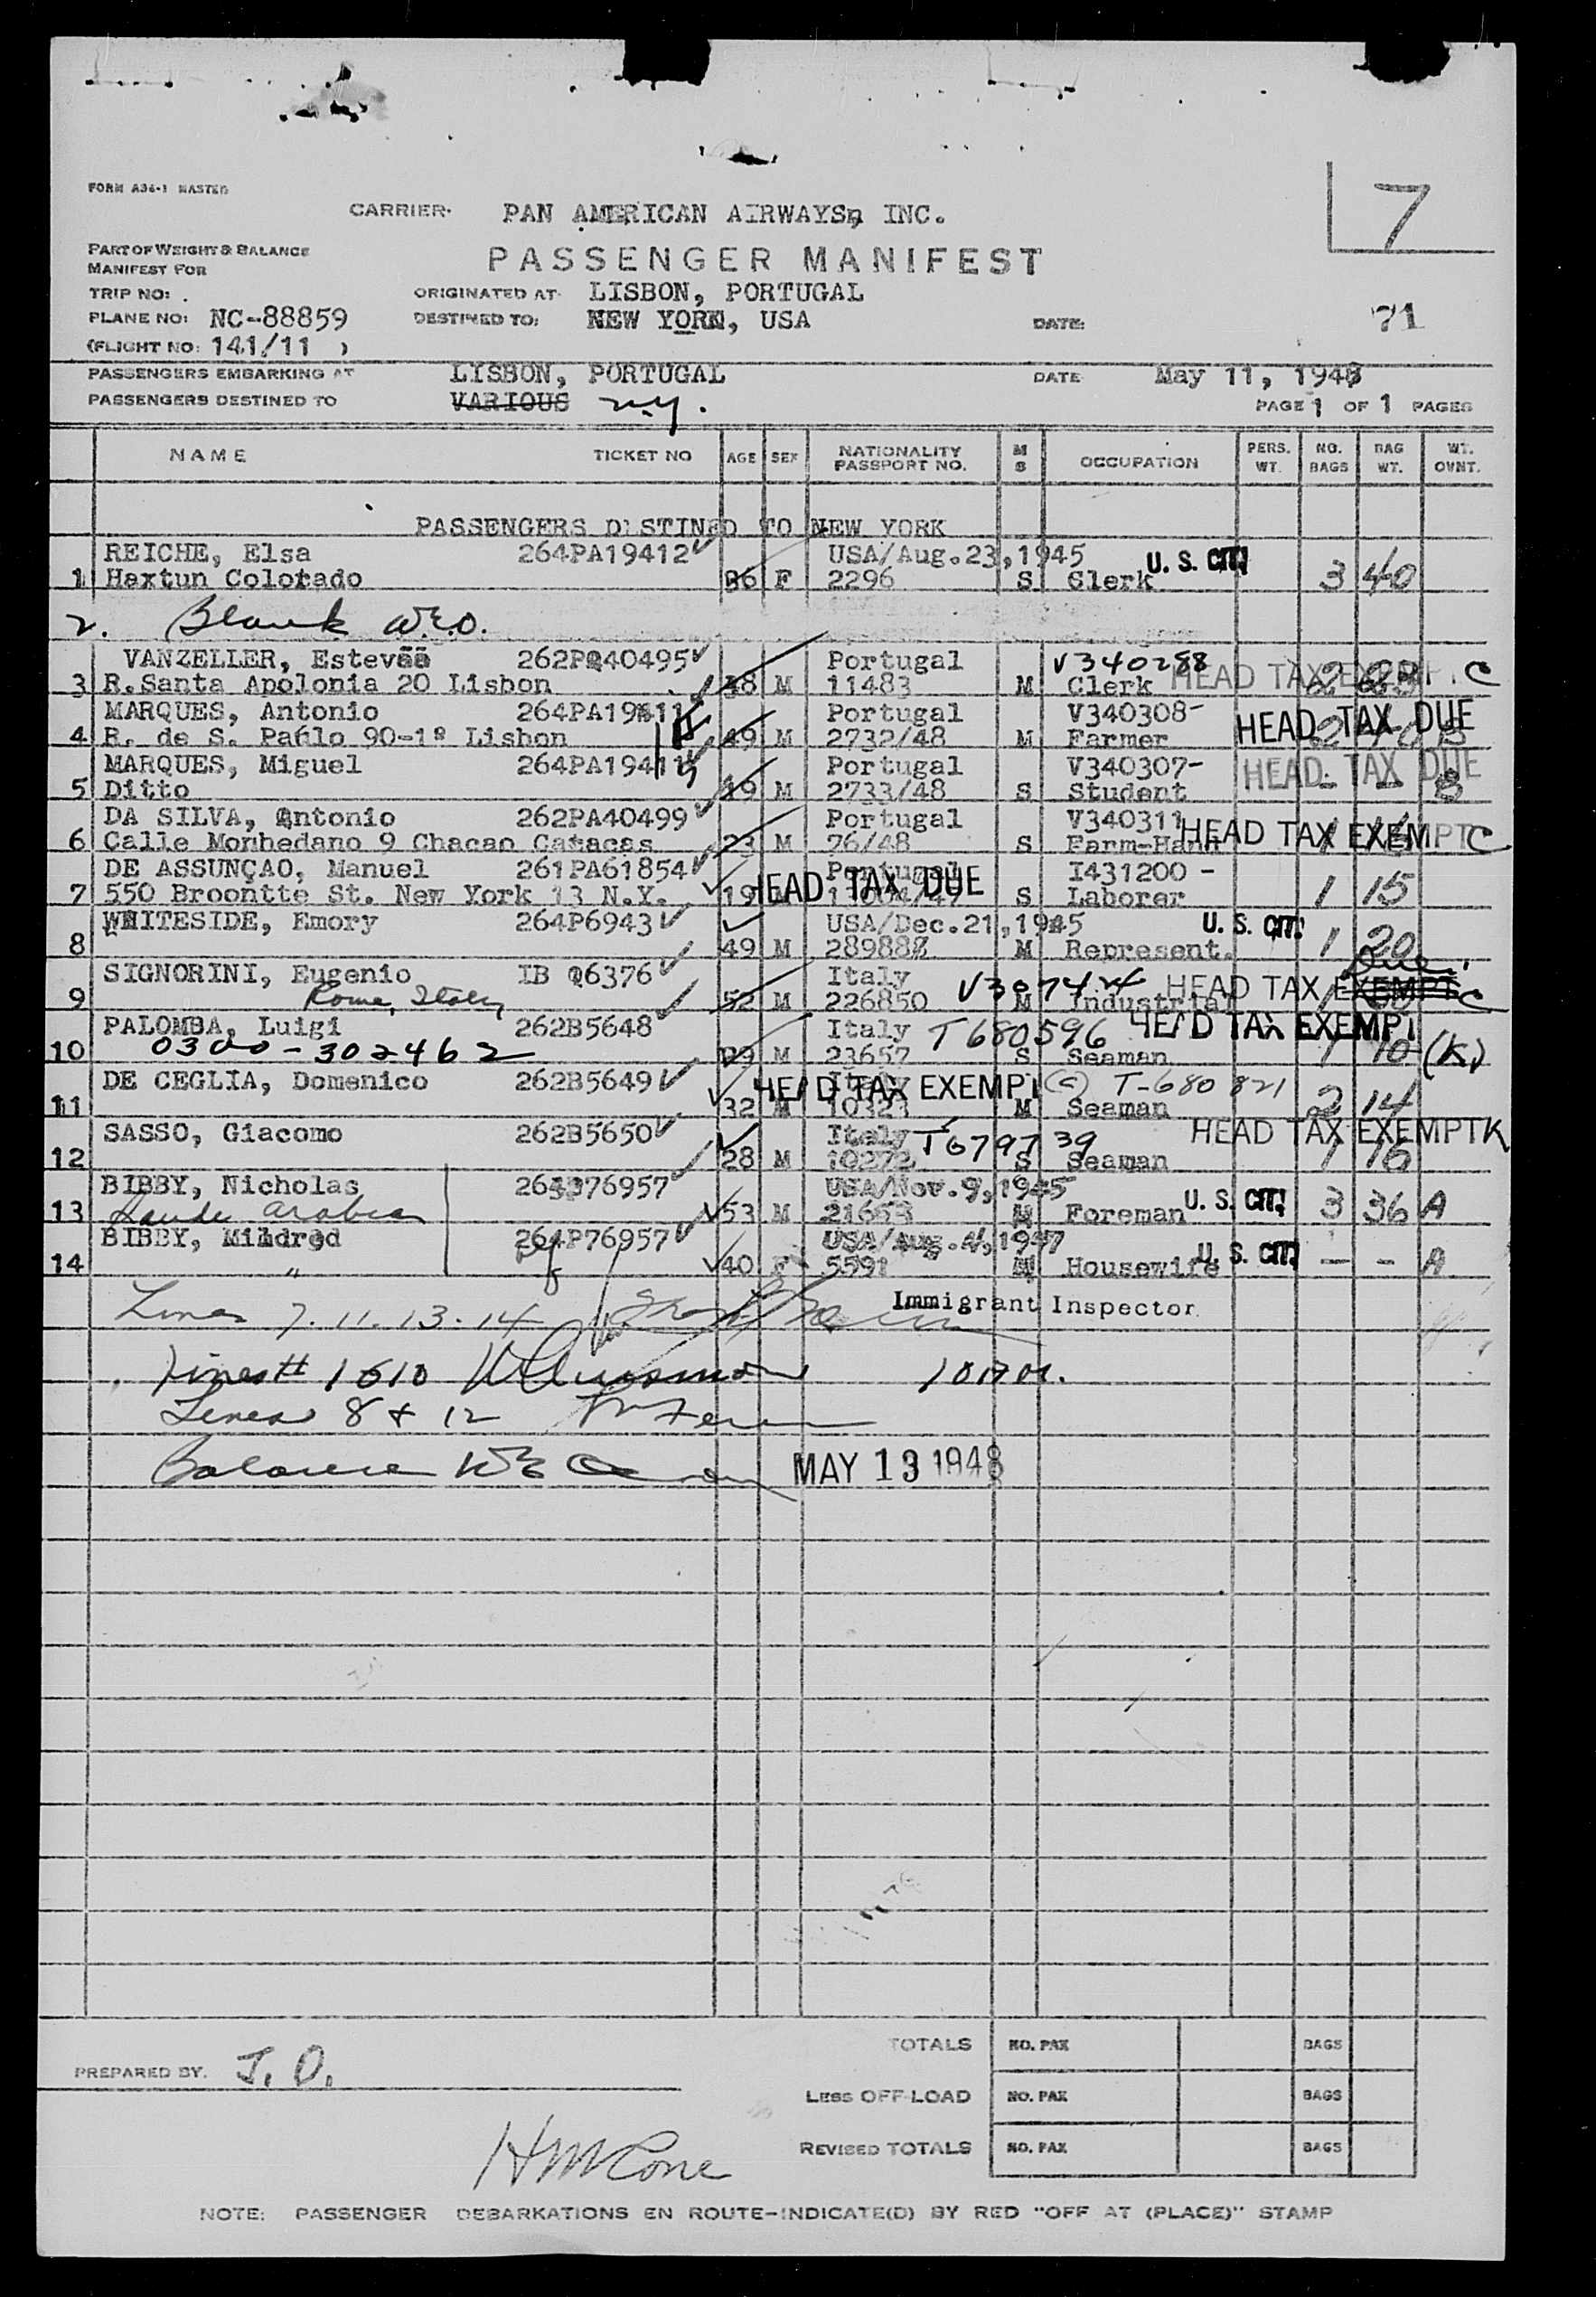 7
FORM A36-1 MASTER
CARRIER: PAN AMERICAN AIRWAYS, INC.
PART OF WEIGHT & BALANCE
MANIFEST FOR
PASSENGER MANIFEST
TRIP NO: .
ORIGINATED AT LISBON, PORTUGAL
PLANE NO: NC-88859
DESTINED TO: NEW YORK, USA
DATE: 71
(FLIGHT NO: 141/11 )
PASSENGERS EMBARKING AT LISBON, PORTUGAL DATE May 11, 1948
PASSENGERS DESTINED TO VARIOUS N.Y. PAGE 1 OF 1 PAGES
NAME TICKET NO AGE SEX NATIONALITY PASSPORT NO. M S OCCUPATION PERS. WT. NO. BAGS BAG WT. WT. OVNT.
PASSENGERS DESTINED TO NEW YORK
REICHE, Elsa 264PA19412 USA/Aug.23,1945 U. S. CIT.
1 Haxtun Colorado 36 F 2296 S Clerk 3 40
2. Blank W.E.O.
VANZELLER, Estevão 262PA40495 Portugal V340288 HEAD TAX EXEMPT C
3 R.Santa Apolonia 20 Lisbon 48 M 11483 M Clerk 2 23
MARQUES, Antonio 264PA19411 Portugal V340308- HEAD TAX DUE
4 R. de S. Pahlo 90-1º Lisbon 49 M 2732/48 M Farmer 2 B
MARQUES, Miguel 264PA19411 Portugal V340307- HEAD TAX DUE
5 Ditto 19 M 2733/48 S Student - - B
DA SILVA, Antonio 262PA40499 Portugal V340311 HEAD TAX EXEMPT C
6 Calle Monhedano 9 Chacao Catacas 23 M 76/48 S Farm-Hand 1
DE ASSUNÇAO, Manuel 261PA61854 Portugal I431200 - HEAD TAX DUE
7 550 Broontte St. New York 13 N.Y. 19 S Laborer 1 15
WHITESIDE, Emory 264P6943 USA/Dec.21,1945 U. S. CIT.
8 49 M 289888 M Represent. 1 20
SIGNORINI, Eugenio IB Q6376 Italy V307424 HEAD TAX EXEMPT Due C
9 Rome, Italy 52 M 226850 M Industrial 1
PALOMBA, Luigi 262B5648 Italy T680596 HEAD TAX EXEMPT
10 0300-302462 29 M 23657 S Seaman 1 10 (K)
DE CEGLIA, Domenico 262B5649 Italy HEAD TAX EXEMPT (C) T-680821
11 32 M 10323 M Seaman 2 14
SASSO, Giacomo 262B5650 Italy T679739 HEAD TAX EXEMPT K
12 28 M 10272 S Seaman 1 16
BIBBY, Nicholas 264P76957 USA/Nov.9,1945 U. S. CIT.
13 Saudi Arabia 53 M 21653 M Foreman 3 36 A
BIBBY, Mildred 264P76957 USA/Aug.4,1947 U. S. CIT.
14 " 40 F 5591 M Housewife - - A
Lines 7. 11. 13. 14 Immigrant Inspector
Lines # 1 6 10
Lines 8 & 12
Balance MAY 13 1948
TOTALS NO. PAX BAGS
PREPARED BY. J. O.
LESS OFF-LOAD NO. PAX BAGS
REVISED TOTALS NO. PAX BAGS
HM Cone
NOTE: PASSENGER DEBARKATIONS EN ROUTE-INDICATE(D) BY RED "OFF AT (PLACE)" STAMP